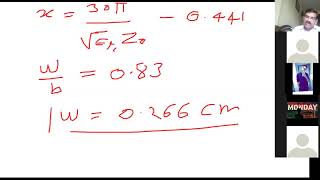 x = 30π / √εr Z0 - 0.441
w/b = 0.83
w = 0.266 cm
MONDAY